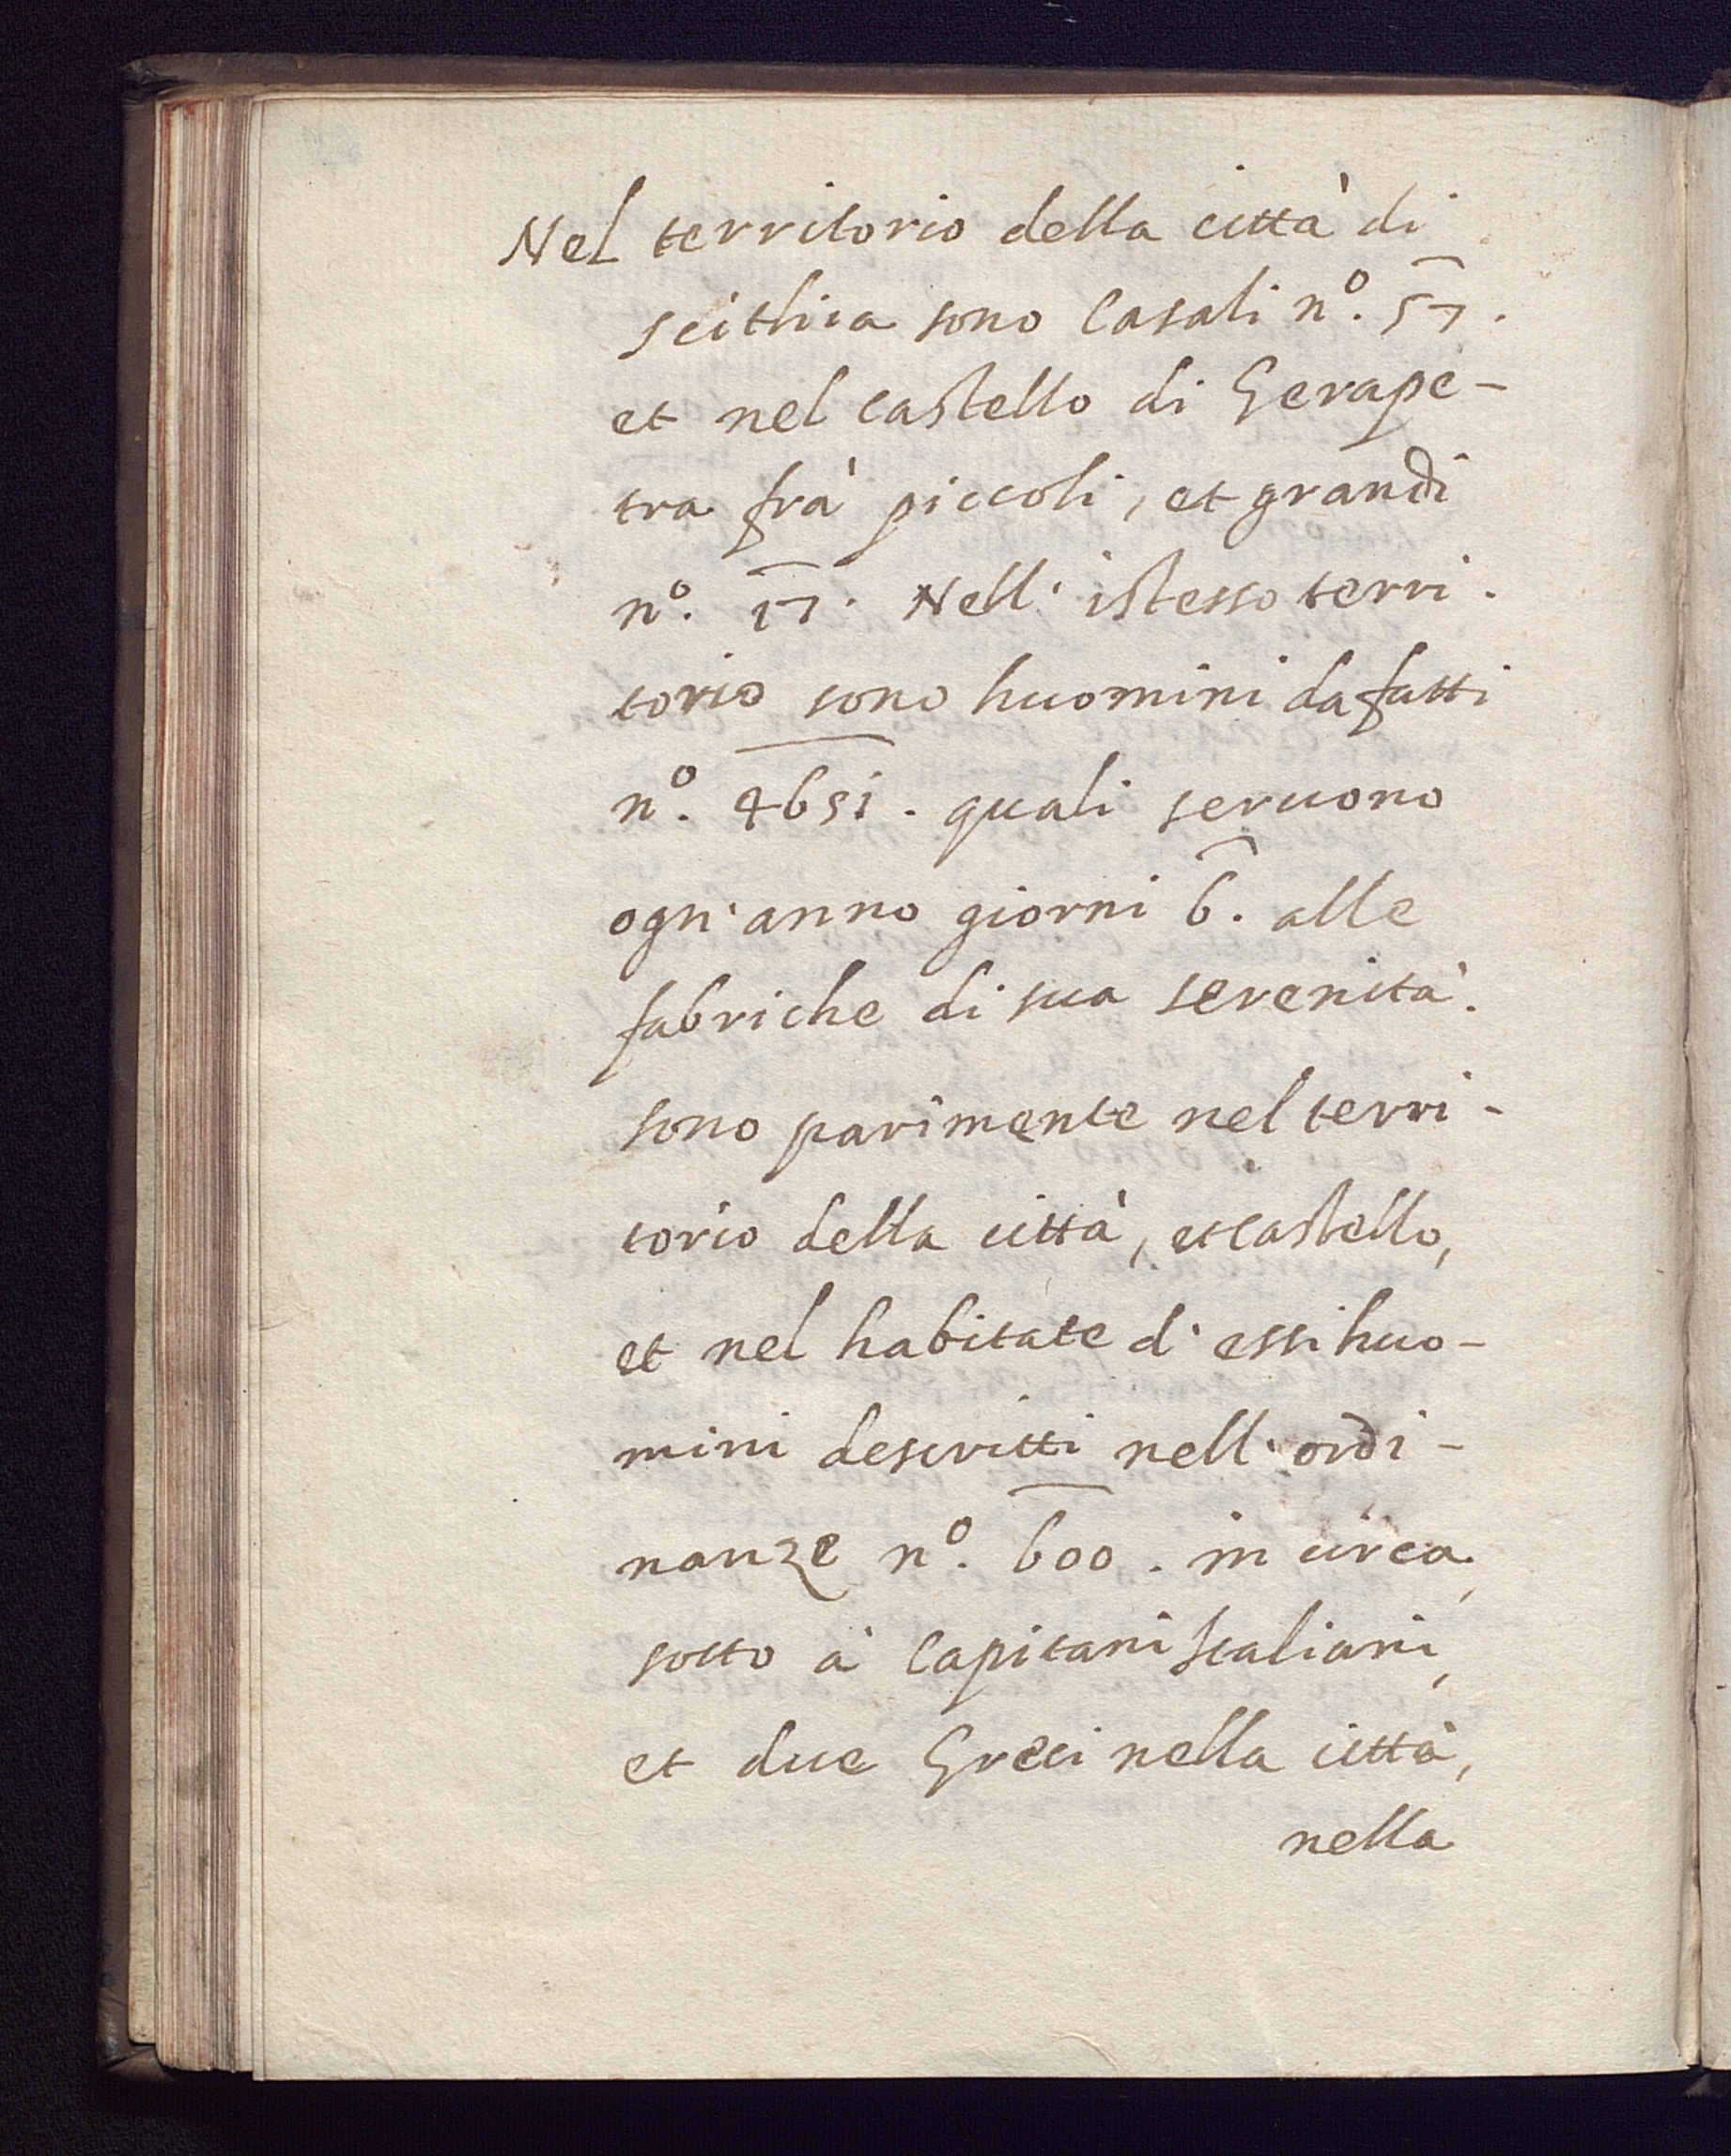 Nel territorio della città di
scithia sono Casali nº. 57.
et nel castello di Gerape-
tra frà piccoli, et grandi
nº. 17. Nell' istesso terri-
torio sono huomini da fatti
nº. 4651. quali seruono
ogn' anno giorni 6. alle
fabriche di sua serenità.
sono parimente nel terri-
torio della città, et castello,
et nel habitate d' essi huo-
mini descritti nell' ordi-
nanze nº. 600. in circa,
sotto à Capitani Italiani,
et due Greci nella città,
nella